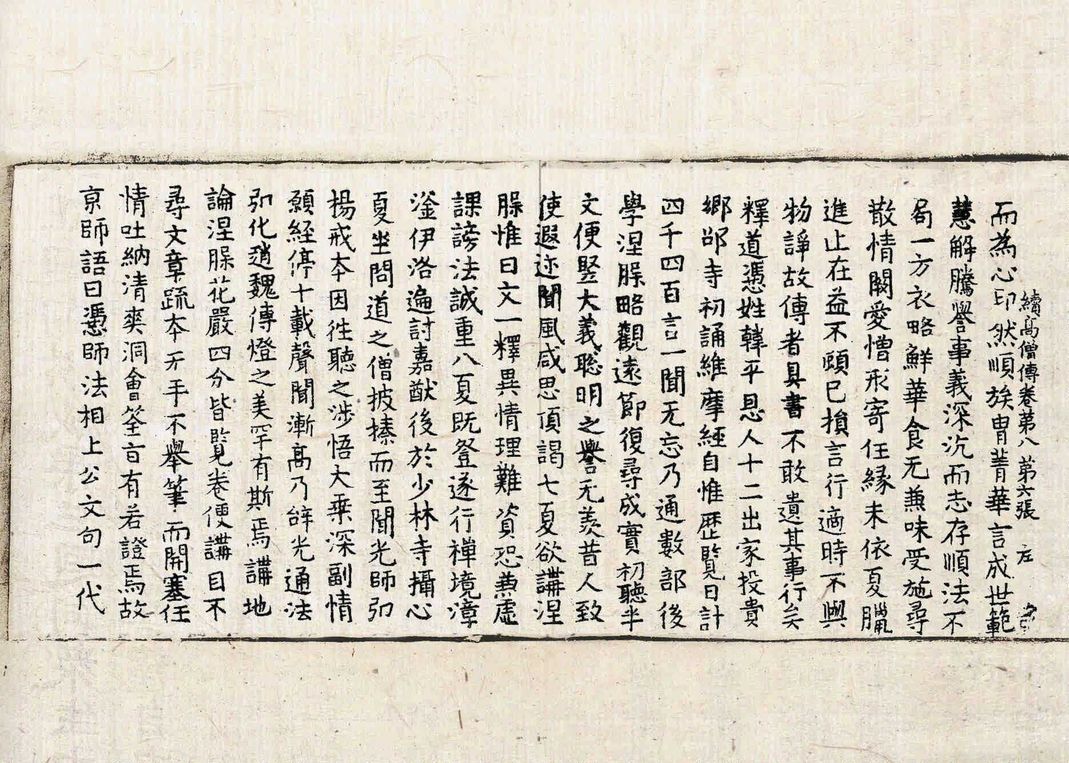 續高僧傳卷第八 第六張 左
而為心印然順族胄菁華言成世範
慧解騰譽事義深沉而志存順法不
局一方衣略鮮華食无兼味受施尋
散情闕愛憎形寄任緣未依夏臘
進止在益不顧已損言行適時不與
物諍故傳者具書不敢遺其事行矣
釋道憑姓韓平恩人十二出家投貴
鄉邵寺初誦維摩經自惟歷覽日計
四千四百言一聞无忘乃通數部後
學涅槃略觀遠節復尋成實初聽半
文便豎大義聡明之譽无羨昔人致
使遐迩聞風咸思頂謁七夏欲講涅
槃惟曰文一釋異情理難資恐兼虛
課謗法誠重八夏既登遂行禪境漳
滏伊洛遍討嘉猷後於少林寺攝心
夏坐問道之僧披榛而至聞光師弘
揚戒夲因往聽之涉悟大乗深副情
願經停十載聲聞漸高乃辞光通法
弘化趙魏傳燈之美罕有斯焉講地
論涅槃花嚴四分皆覧卷便講目不
尋文章疏夲无手不舉筆而開塞任
情吐納清爽洞會筌旨有若證焉故
京師語曰憑師法相上公文句一代